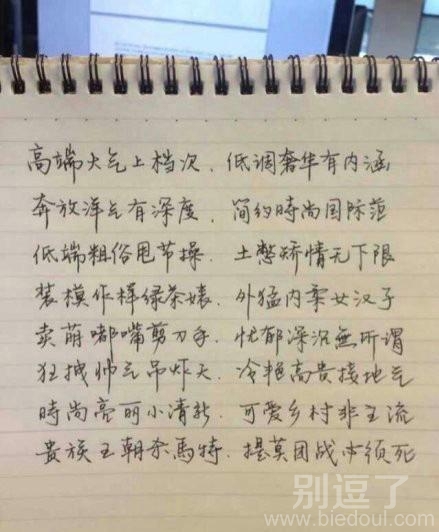 高端大气上档次、低调奢华有内涵
奔放洋气有深度、简约時尚国际范
低端粗俗甩节操、土憋矫情无下限
装模作样绿茶婊、外猛内柔女汉子
卖萌嘟嘴剪刀手、忧郁深沉無所谓
狂拽帅气吊炸天、冷艳高贵接地气
時尚亮丽小清新、可爱乡村非主流
贵族王朝杀馬特、提莫团战必须死
别逗了
www.biedoul.com